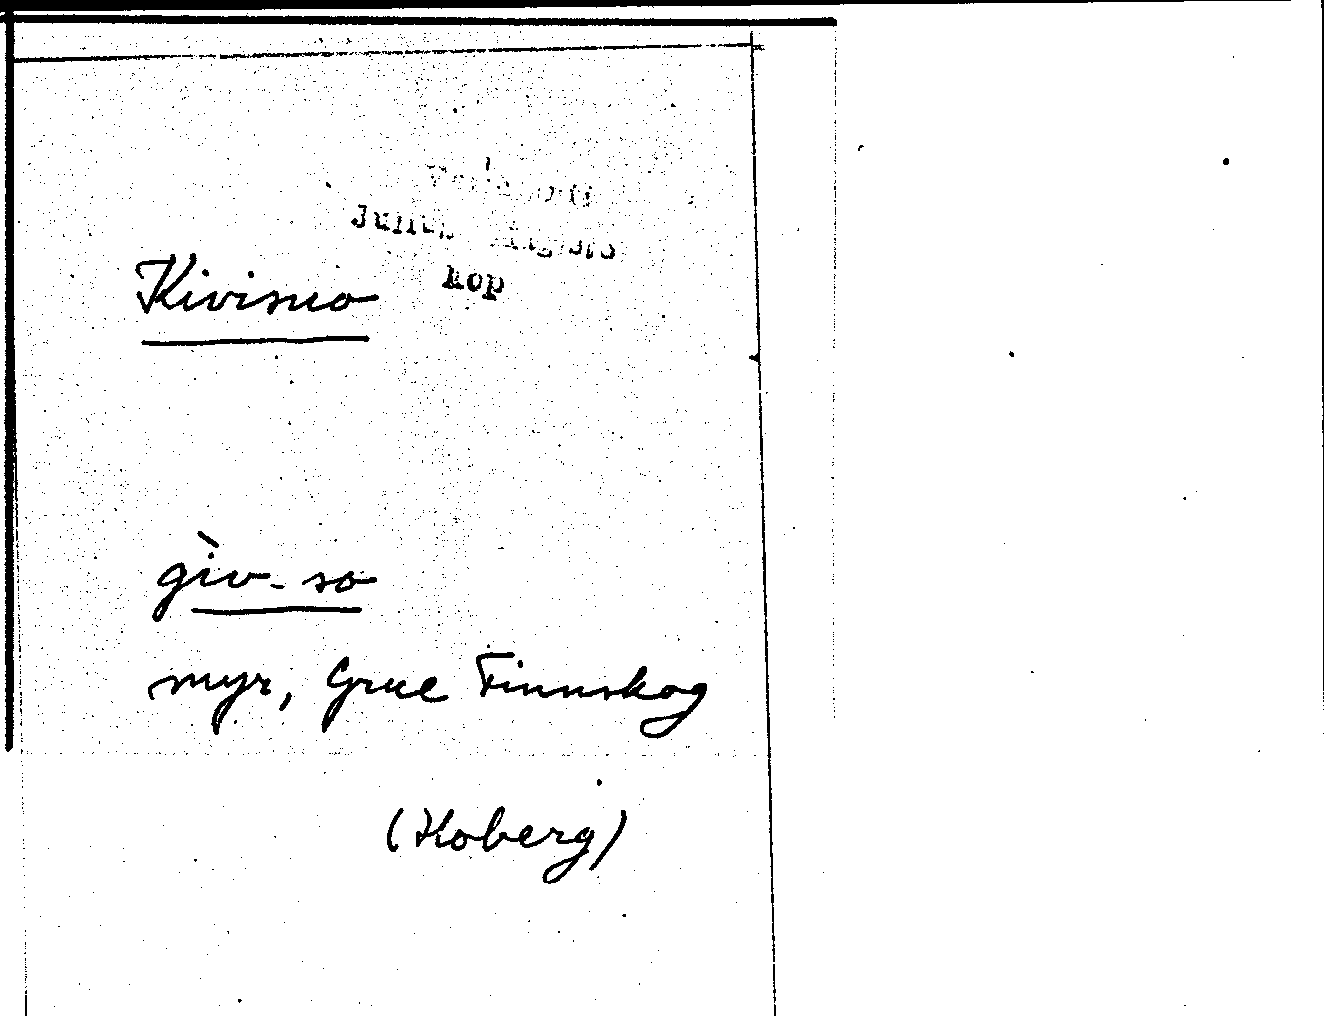 Julius
kop
Kivisuo
gìv-so
myr, Grue Finnskog
(Hoberg)